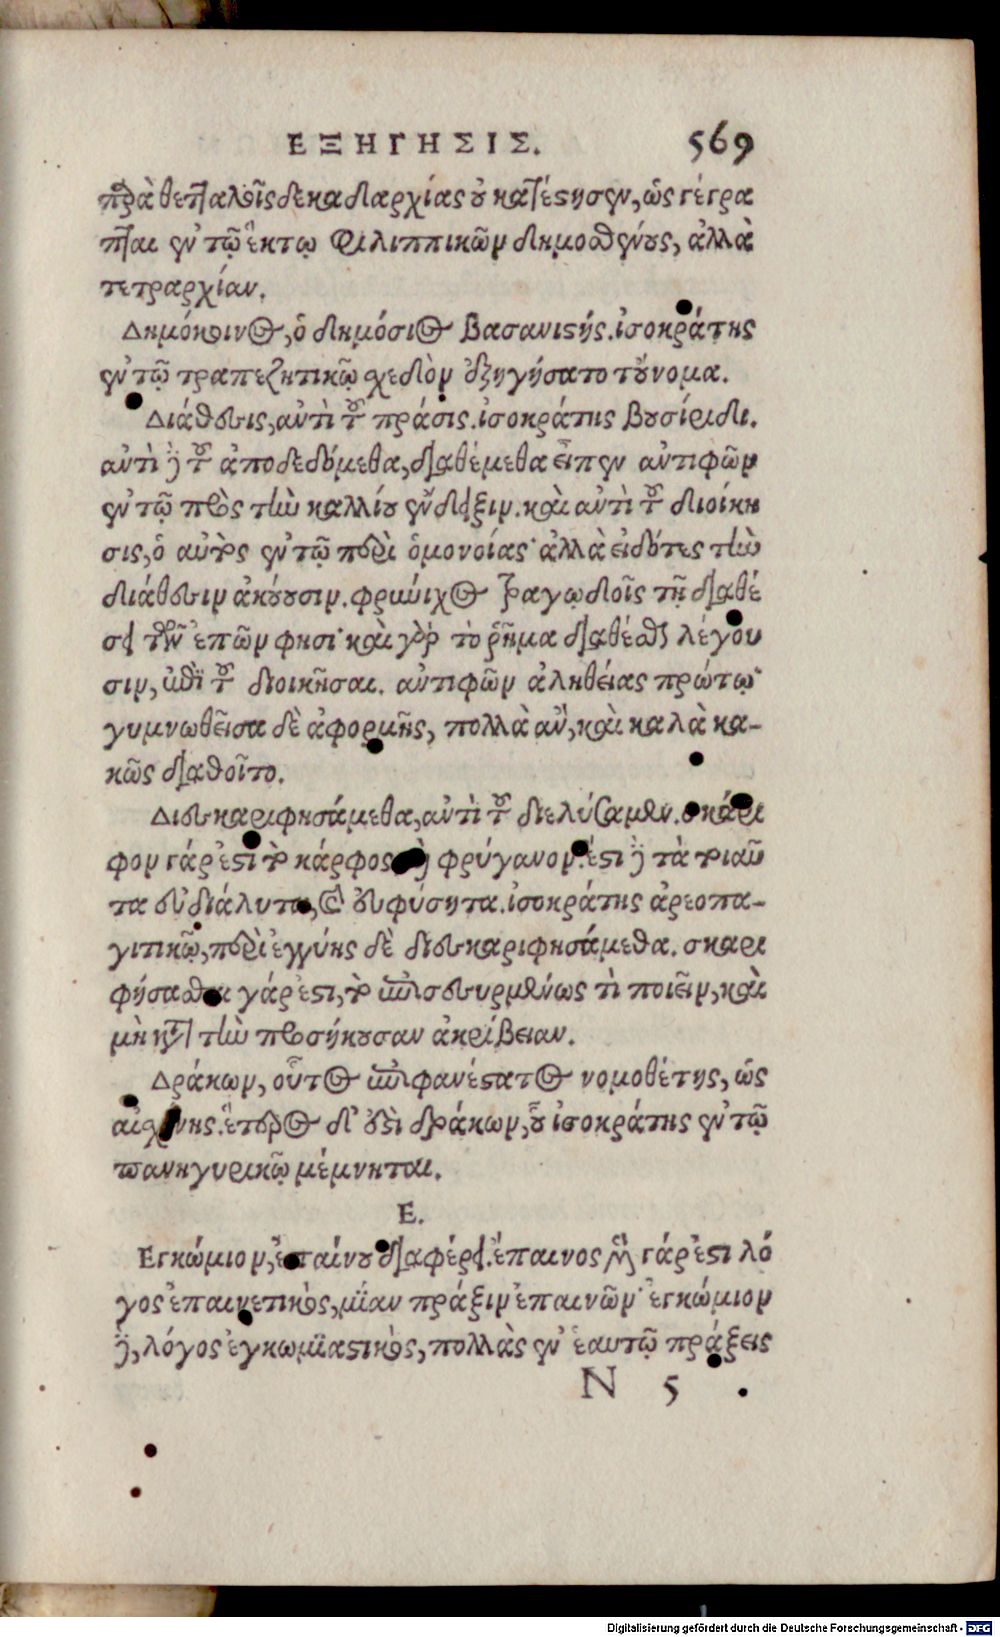 ΕΞΗΓΗΣΙΣ. 569
παρὰ θετταλοῖς δεκαδαρχίας οὐ κατέστησεν, ὡς γέγρα
πται ἐν τῷ ἕκτῳ Φιλιππικῶν δημοσθένους, ἀλλὰ
τετραρχίαν.
Δημόκοινος, ὁ δημόσιος βασανιστής. ἰσοκράτης
ἐν τῷ τραπεζητικῷ σχεδὸν ἐξηγήσατο τοὔνομα.
Διάθεσις, αὐτὶ τοῦ πράσις. ἰσοκράτης βουσίριδι.
αὐτὶ δὲ τοῦ ἀποδεδόμεθα, διαθέμεθα εἶπεν αὐτιφῶν
ἐν τῷ πρὸς τὴν καλλίου ἔνδειξιν. καὶ αὐτὶ τοῦ διοίκη
σις, ὁ αὐτὸς ἐν τῷ περὶ ὁμονοίας· ἀλλὰ εἰδότες τὴν
διάθεσιν ἀκούουσιν. φρύνιχος τραγῳδοῖς τῇ διαθέ
σει τῶν ἐπῶν φησι· καὶ γὰρ τὸ ῥῆμα διαθέσθαι λέγου
σιν, ἐπὶ τοῦ διοικῆσαι. αὐτιφῶν ἀληθείας πρώτῳ·
γυμνωθεῖσα δὲ ἀφορμῆς, πολλὰ αὔ, καὶ καλὰ κα-
κῶς διαθοῖτο.
Διεσκαριφησάμεθα, αὐτὶ τοῦ διελύσαμεν. σκάρι
φον γάρ ἐστι τὸ κάρφος καὶ φρύγανον. ἔστι δὲ τὰ τοιαῦ
τα εὐδιάλυτα, καὶ εὐφύσητα. ἰσοκράτης ἀρεοπα-
γιτικῷ, περὶ ἐγγύης δὲ διεσκαριφησάμεθα. σκαρι
φήσασθαι γάρ ἐστι, τὸ ἐπισεσυρμένως τὶ ποιεῖν, καὶ
μὴ κατὰ τὴν προσήκουσαν ἀκρίβειαν.
Δράκων, οὗτος ἐπιφανέστατος νομοθέτης, ὡς
αἰσχίνης. ἕτερος δ' ἐστὶ δράκων, οὗ ἰσοκράτης ἐν τῷ
πανηγυρικῷ μέμνηται.
Ε.
Εγκώμιον, ἐπαίνου διαφέρει. ἔπαινος μὲν γάρ ἐστι λό
γος ἐπαινετικὸς, μίαν πράξιν ἐπαινῶν· ἐγκώμιον
δὲ, λόγος ἐγκωμιαστικὸς, πολλὰς ἐν ἑαυτῷ πράξεις
N 5
Digitalisierung gefördert durch die Deutsche Forschungsgemeinschaft - DFG